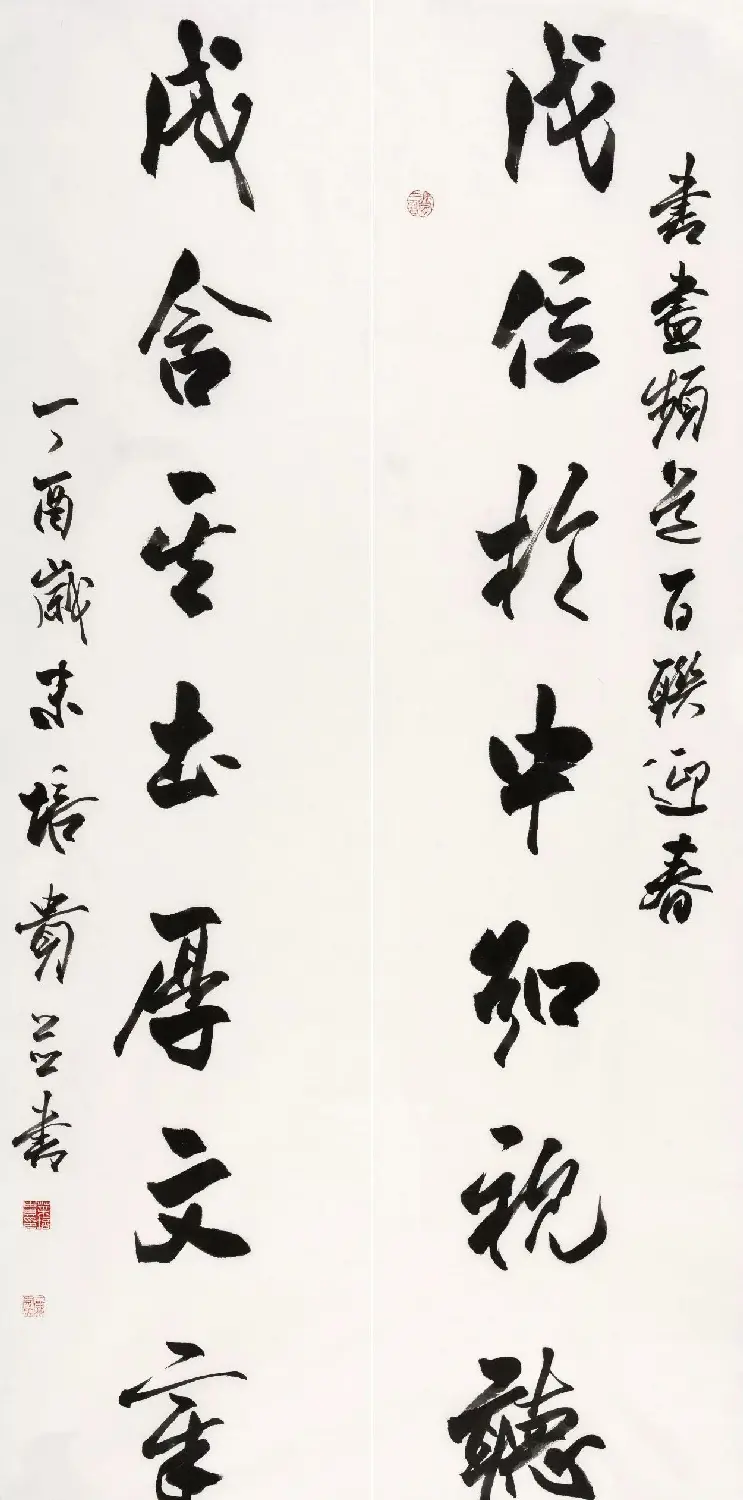 書畫頻道百聯迎春
戊位於中和視聽
戌含其吉厚文章
丁酉歲末培貴並書